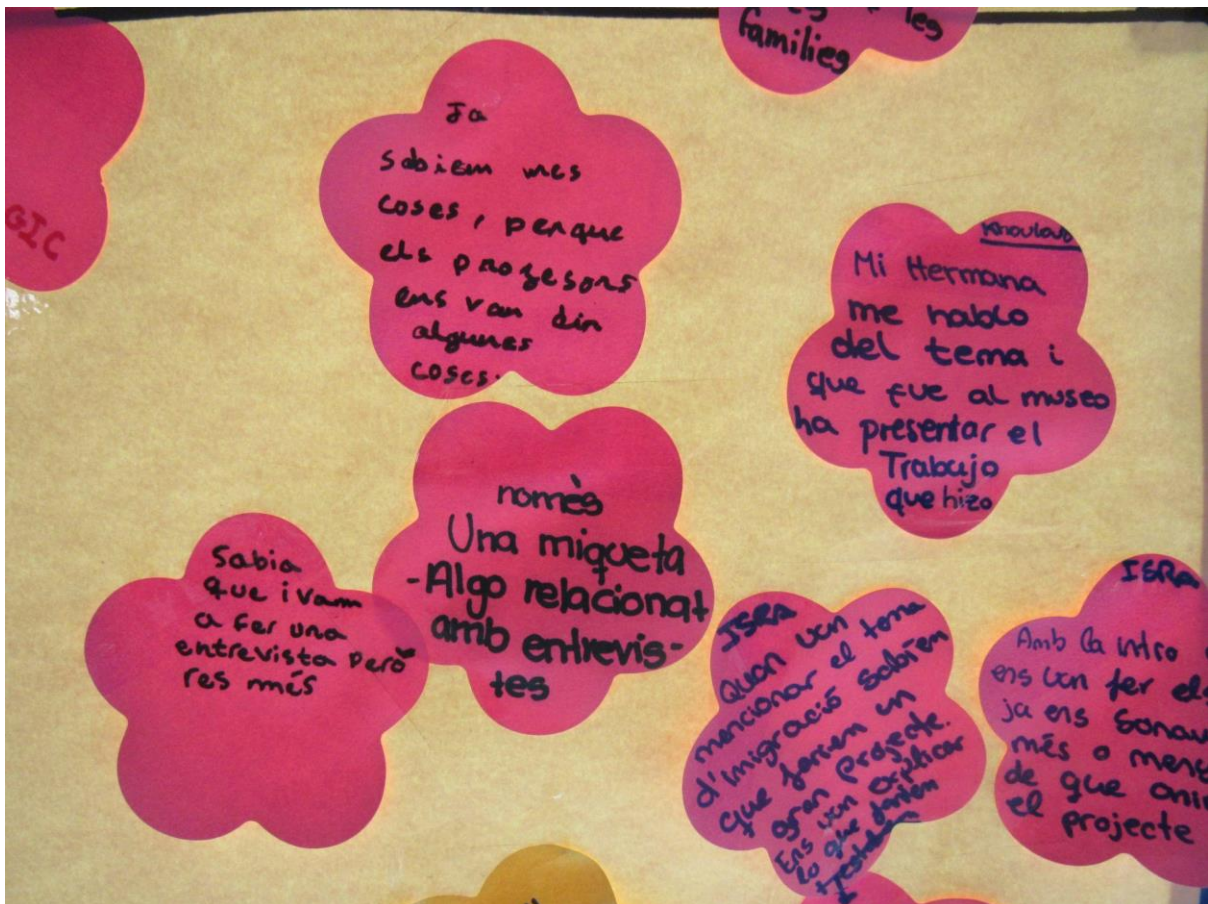 les
families
GIC
Ja
sabiem mes
coses, perque
els profesors
ens van dir
algunes
coses.
Khouloud
Mi Hermana
me hablo
del tema i
que fue al museo
ha presentar el
Trabajo
que hizo
només
Una miqueta
-Algo relacionat
amb entrevis-
tes
Sabia
que ivam
a fer una
entrevista però
res més
ISRA
Quan van
mencionar el tema
d'imigració sabíem
que faríem un
gran projecte.
Ens van explicar
lo que faríem
ISRA
Amb la intro
ens van fer els
ja ens
més o menys
de que
el projecte